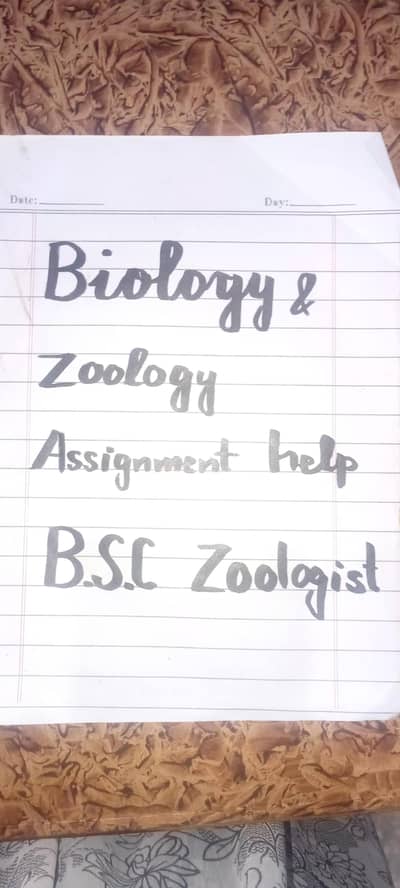 Date: Day:
Biology &
Zoology
Assignment help
B.S.C Zoologist